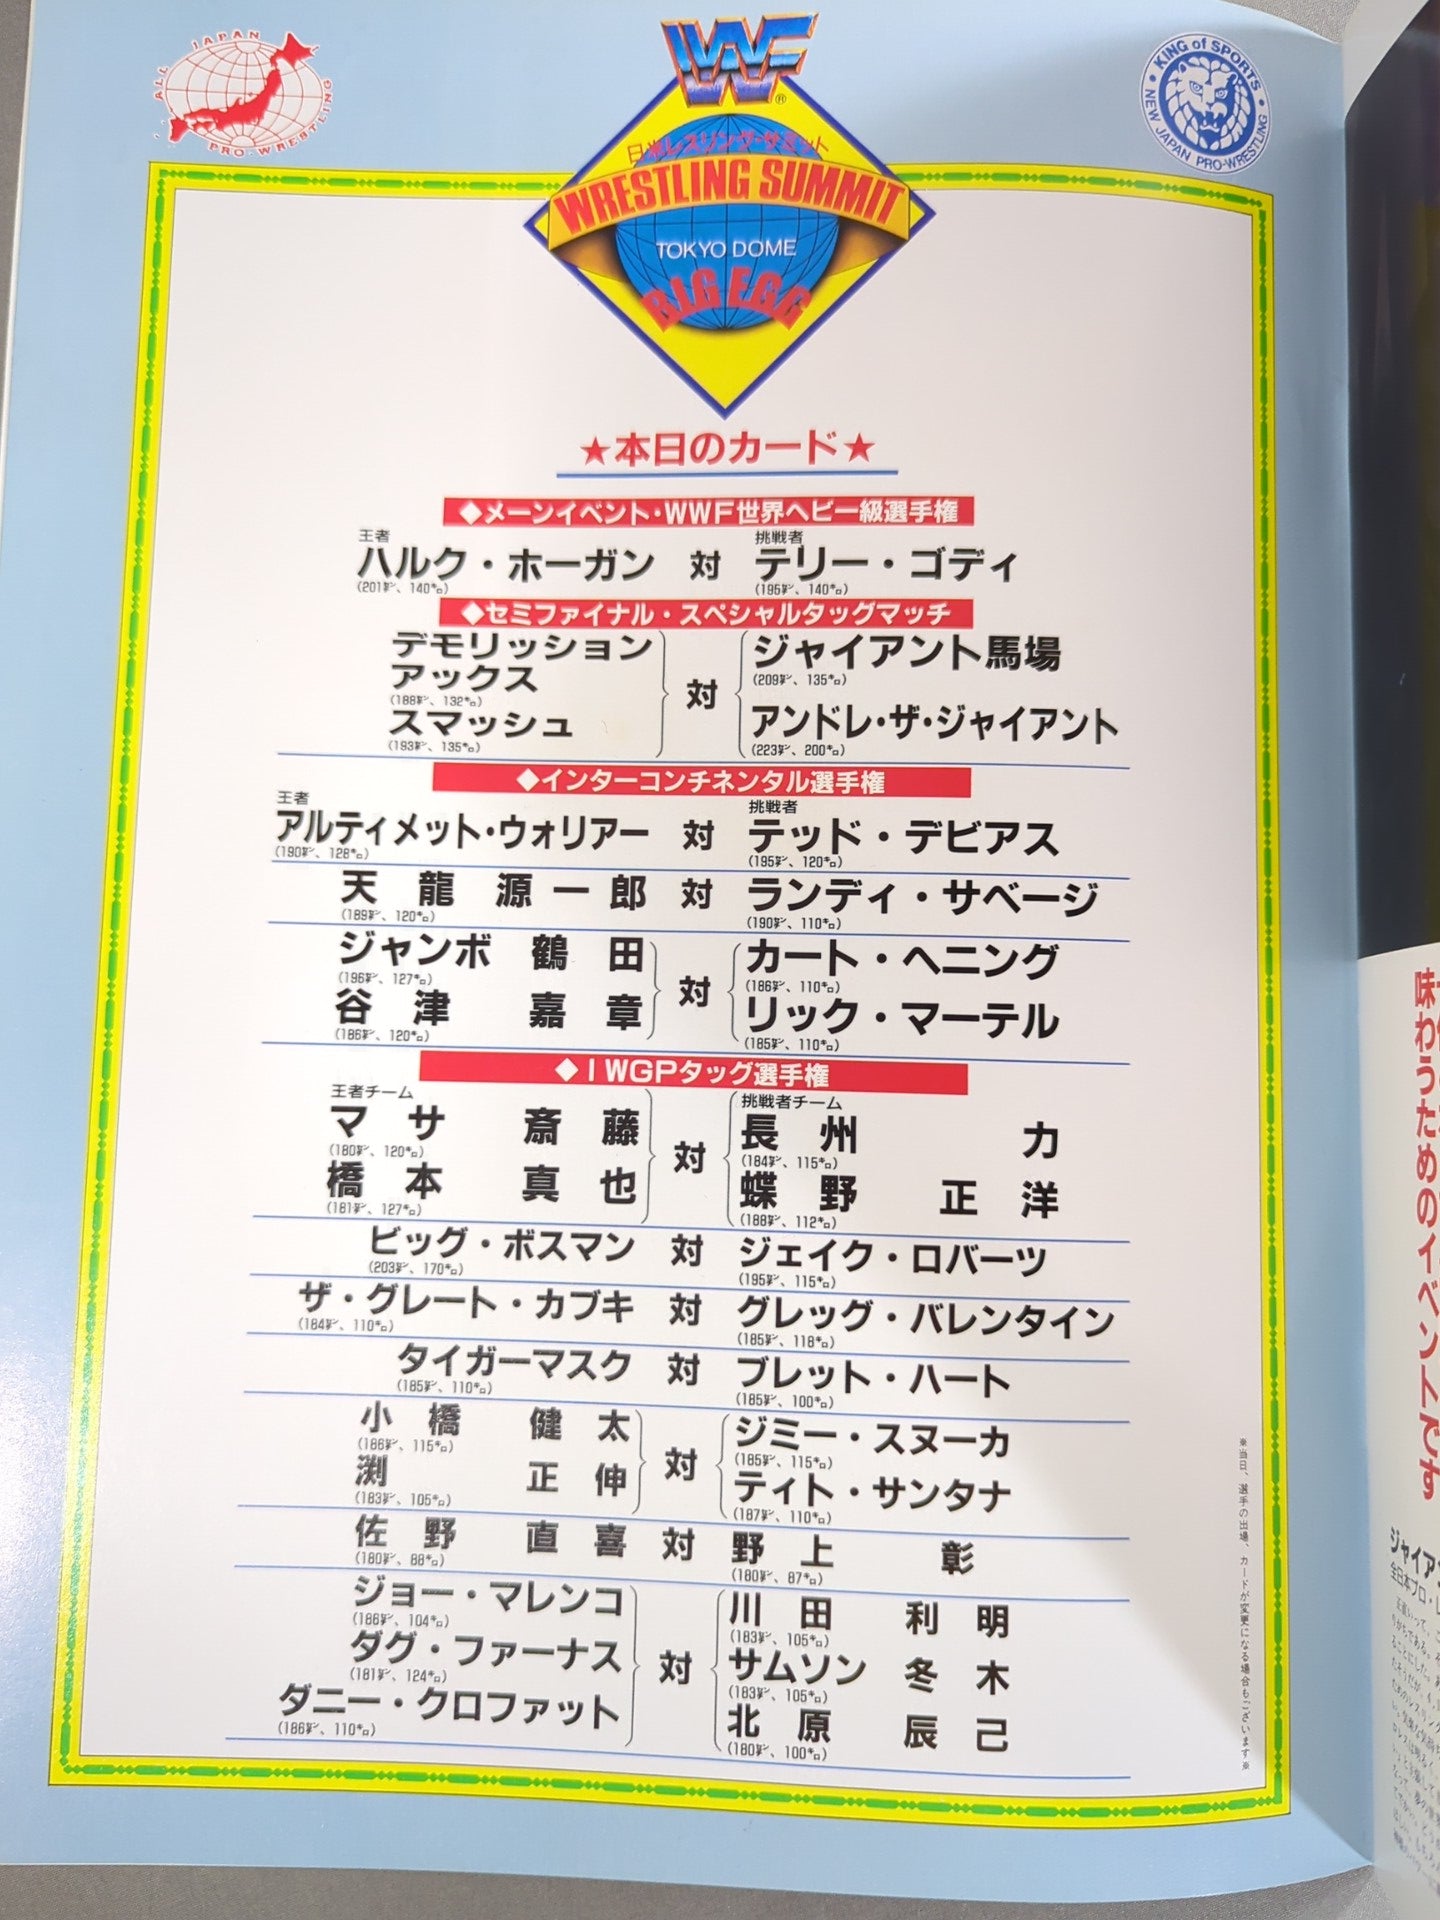 ALL JAPAN PRO-WRESTLING
WWF®
KING of SPORTS
NEW JAPAN PRO-WRESTLING
日米レスリング・サミット
WRESTLING SUMMIT
TOKYO DOME
B.I.G E.G.G
★本日のカード★
◆メーンイベント・WWF世界ヘビー級選手権
王者 挑戦者
ハルク・ホーガン 対 テリー・ゴディ
(201㌢、140㌔) (195㌢、140㌔)
◆セミファイナル・スペシャルタッグマッチ
デモリッション
アックス
(188㌢、132㌔)
スマッシュ
(193㌢、135㌔)
対
ジャイアント馬場
(209㌢、135㌔)
アンドレ・ザ・ジャイアント
(223㌢、200㌔)
◆インターコンチネンタル選手権
王者 挑戦者
アルティメット・ウォリアー 対 テッド・デビアス
(190㌢、128㌔) (195㌢、120㌔)
天龍源一郎 対 ランディ・サベージ
(189㌢、120㌔) (190㌢、110㌔)
ジャンボ鶴田
(196㌢、127㌔)
谷津嘉章
(186㌢、120㌔)
対
カート・ヘニング
(186㌢、110㌔)
リック・マーテル
(185㌢、110㌔)
◆IWGPタッグ選手権
王者チーム
マサ斎藤
(180㌢、120㌔)
橋本真也
(181㌢、127㌔)
対
挑戦者チーム
長州力
(184㌢、115㌔)
蝶野正洋
(188㌢、112㌔)
ビッグ・ボスマン 対 ジェイク・ロバーツ
(203㌢、170㌔) (195㌢、115㌔)
ザ・グレート・カブキ 対 グレッグ・バレンタイン
(184㌢、110㌔) (185㌢、118㌔)
タイガーマスク 対 ブレット・ハート
(185㌢、110㌔) (185㌢、100㌔)
小橋健太
(186㌢、115㌔)
渕正伸
(183㌢、105㌔)
対
ジミー・スヌーカ
(185㌢、115㌔)
ティト・サンタナ
(187㌢、110㌔)
佐野直喜 対 野上彰
(180㌢、88㌔) (180㌢、87㌔)
ジョー・マレンコ
(186㌢、104㌔)
ダグ・ファーナス
(181㌢、124㌔)
ダニー・クロファット
(186㌢、110㌔)
対
川田利明
(183㌢、105㌔)
サムソン冬木
(183㌢、105㌔)
北原辰己
(180㌢、100㌔)
※当日、選手の出場、カードが変更になる場合もございます※
味わうためのイベントです